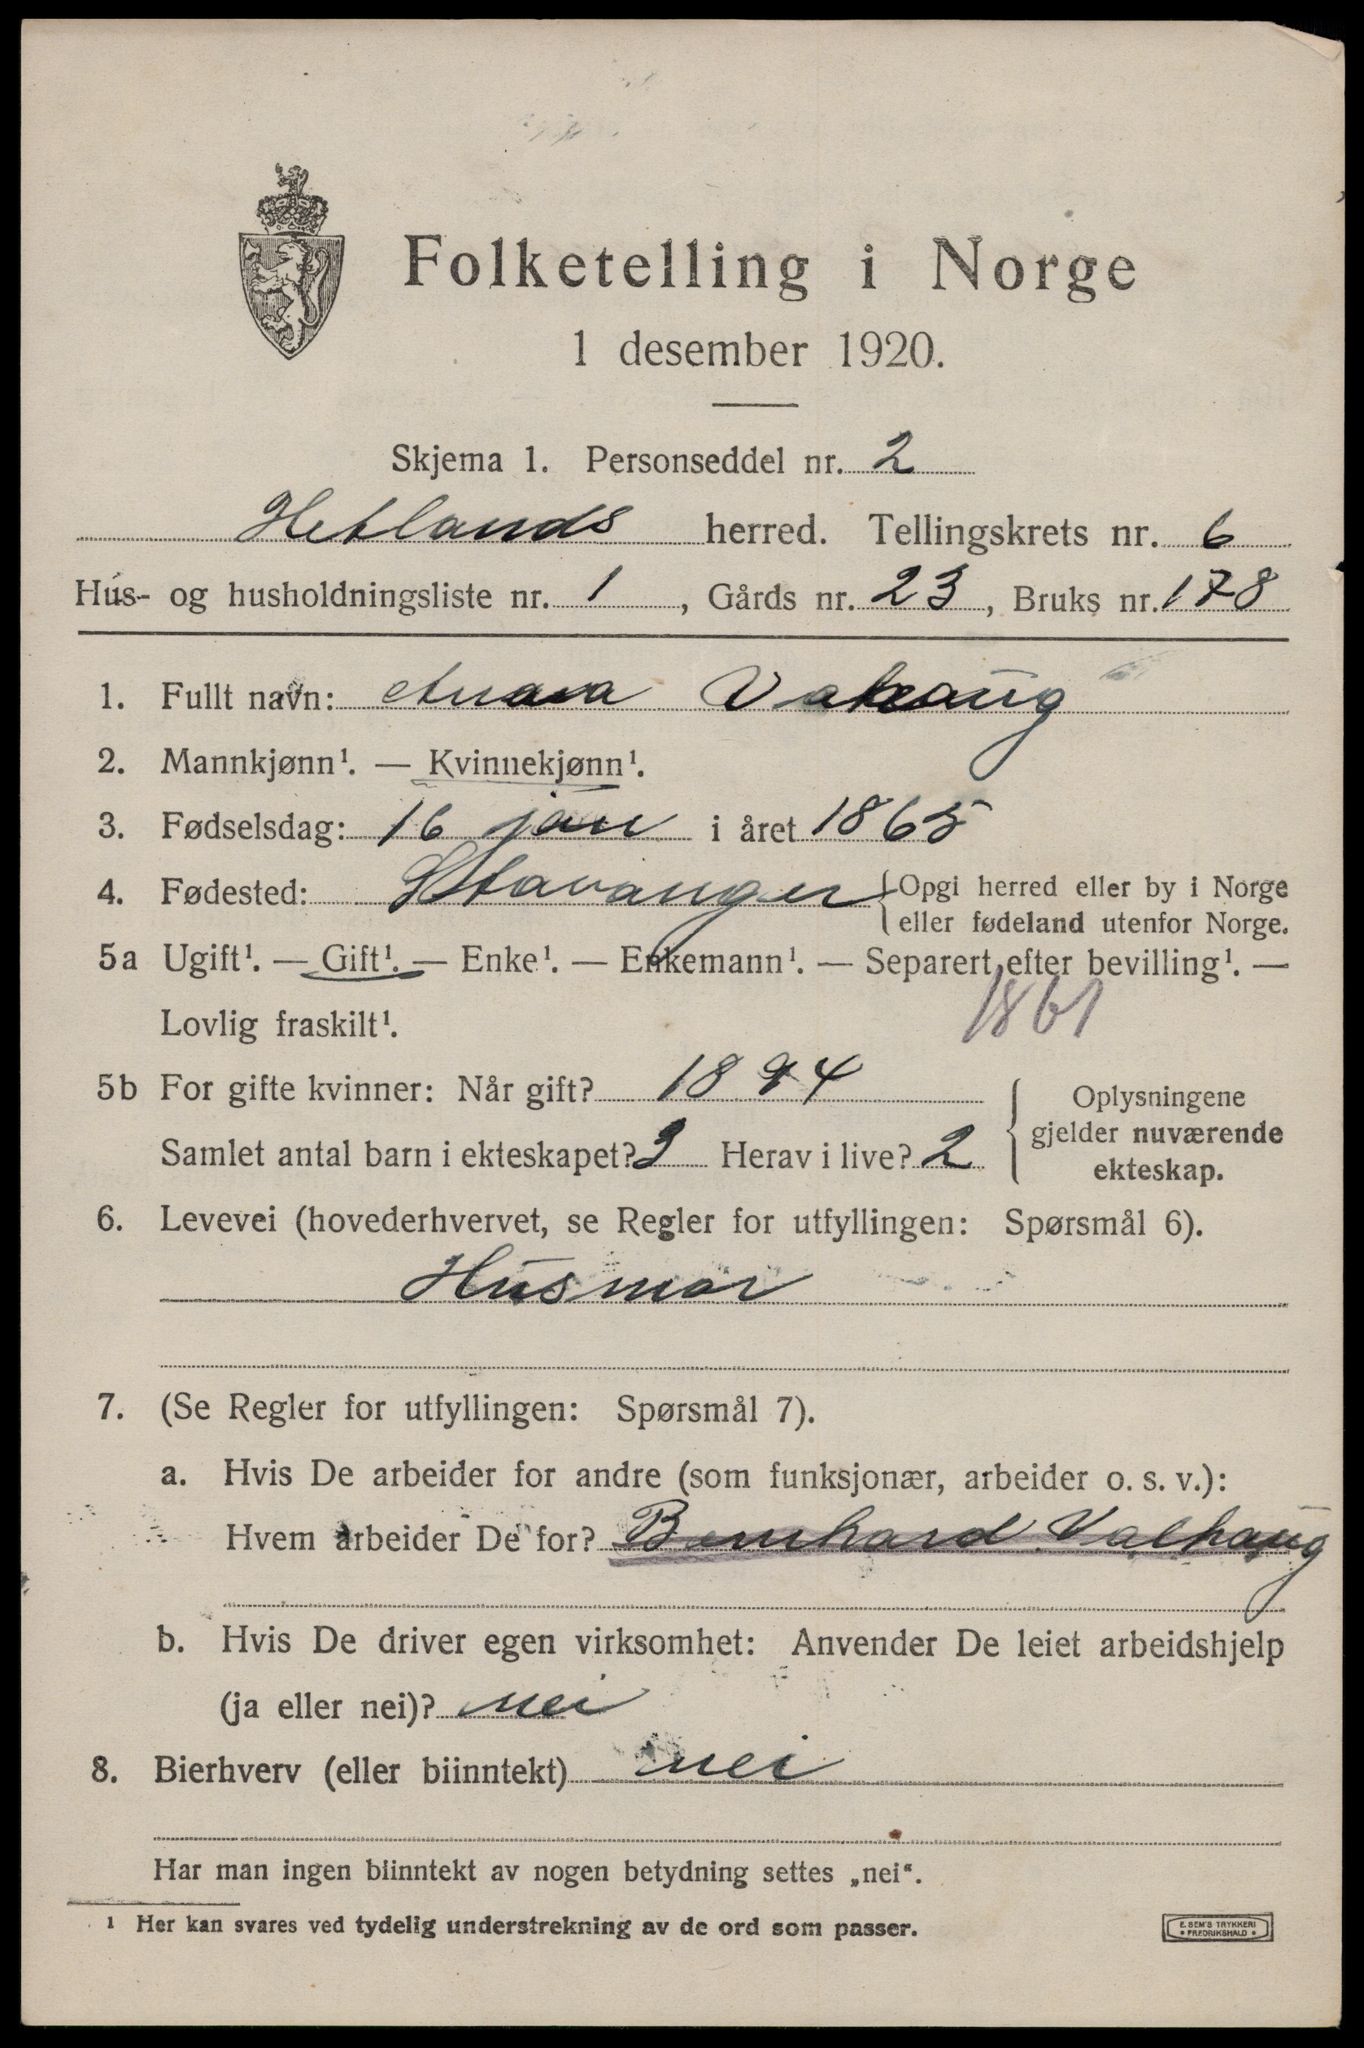 Folketelling i Norge
1 desember 1920.
Skjema 1. Personseddel nr. 2
Hetlands herred. Tellingskrets nr. 6
Hus- og husholdningsliste nr. 1, Gårds nr. 23, Bruks nr. 178
1. Fullt navn: Anna Valhaug
2. Mannkjønn¹. — Kvinnekjønn¹.
3. Fødselsdag: 16 jan i året 1865
4. Fødested: Stavanger { Opgi herred eller by i Norge
eller fødeland utenfor Norge.
5a Ugift¹. — Gift¹. — Enke¹. — Enkemann¹. — Separert efter bevilling¹. —
Lovlig fraskilt¹. 1861
5b For gifte kvinner: Når gift? 1894
Samlet antal barn i ekteskapet? 3 Herav i live? 2
Oplysningene
gjelder nuværende
ekteskap.
6. Levevei (hovederhvervet, se Regler for utfyllingen: Spørsmål 6).
Husmor
7. (Se Regler for utfyllingen: Spørsmål 7).
a. Hvis De arbeider for andre (som funksjonær, arbeider o. s. v.):
Hvem arbeider De for? Bernhard Valhaug
b. Hvis De driver egen virksomhet: Anvender De leiet arbeidshjelp
(ja eller nei)? nei
8. Bierhverv (eller biinntekt) nei
Har man ingen biinntekt av nogen betydning settes „nei“.
¹ Her kan svares ved tydelig understrekning av de ord som passer.
E. SEM'S TRYKKERI
• FREDRIKSHALD •